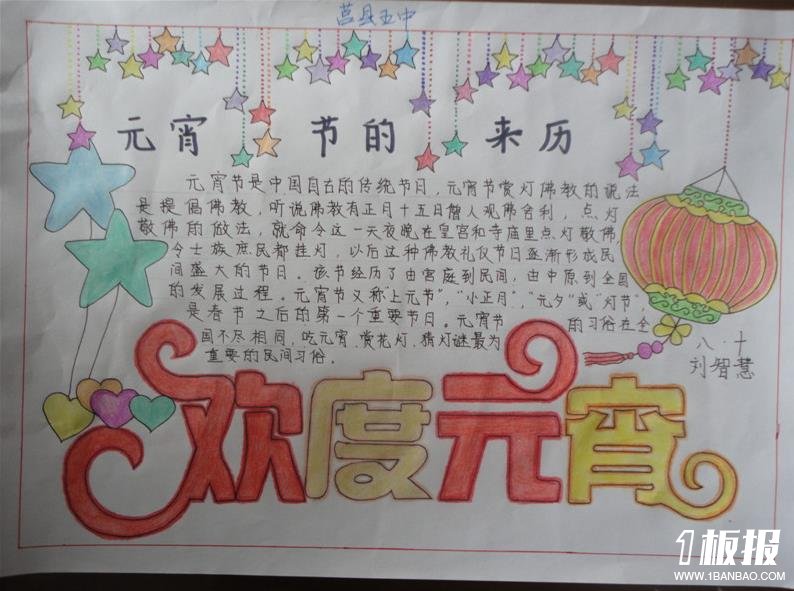 莒县五中
元宵节的来历
元宵节是中国自古的传统节日，元宵节赏灯佛教的说法
是提倡佛教，听说佛教有正月十五日僧人观佛舍利，点灯
敬佛的做法，就命令这一天夜晚在皇宫和寺庙里点灯敬佛，
令士族庶民都挂灯，以后这种佛教礼仪节日逐渐形成民
间盛大的节日。该节经历了由宫庭到民间，由中原到全国
的发展过程。元宵节又称"上元节"，"小正月"，"元夕"或"灯节"，
是春节之后的第一个重要节日。元宵节的习俗在全
国不尽相同，吃元宵、赏花灯、猜灯谜最为
重要的民间习俗。
八·十
刘智慧
欢度元宵
1板报
WWW.1BANBAO.COM